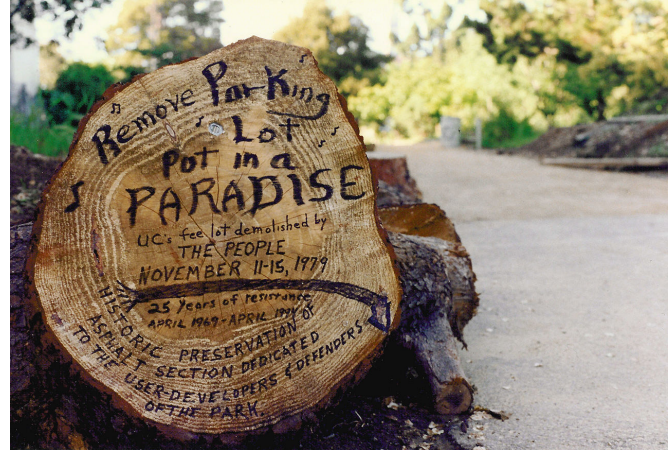 Remove Parking
Lot
Put in a
PARADISE
UC's fee lot demolished by
THE PEOPLE
NOVEMBER 11-15, 1979
25 years of resistance
APRIL 1969-APRIL 1994
HISTORIC PRESERVATION OF
ASPHALT SECTION DEDICATED
TO THE USER-DEVELOPERS & DEFENDERS
OF THE PARK.